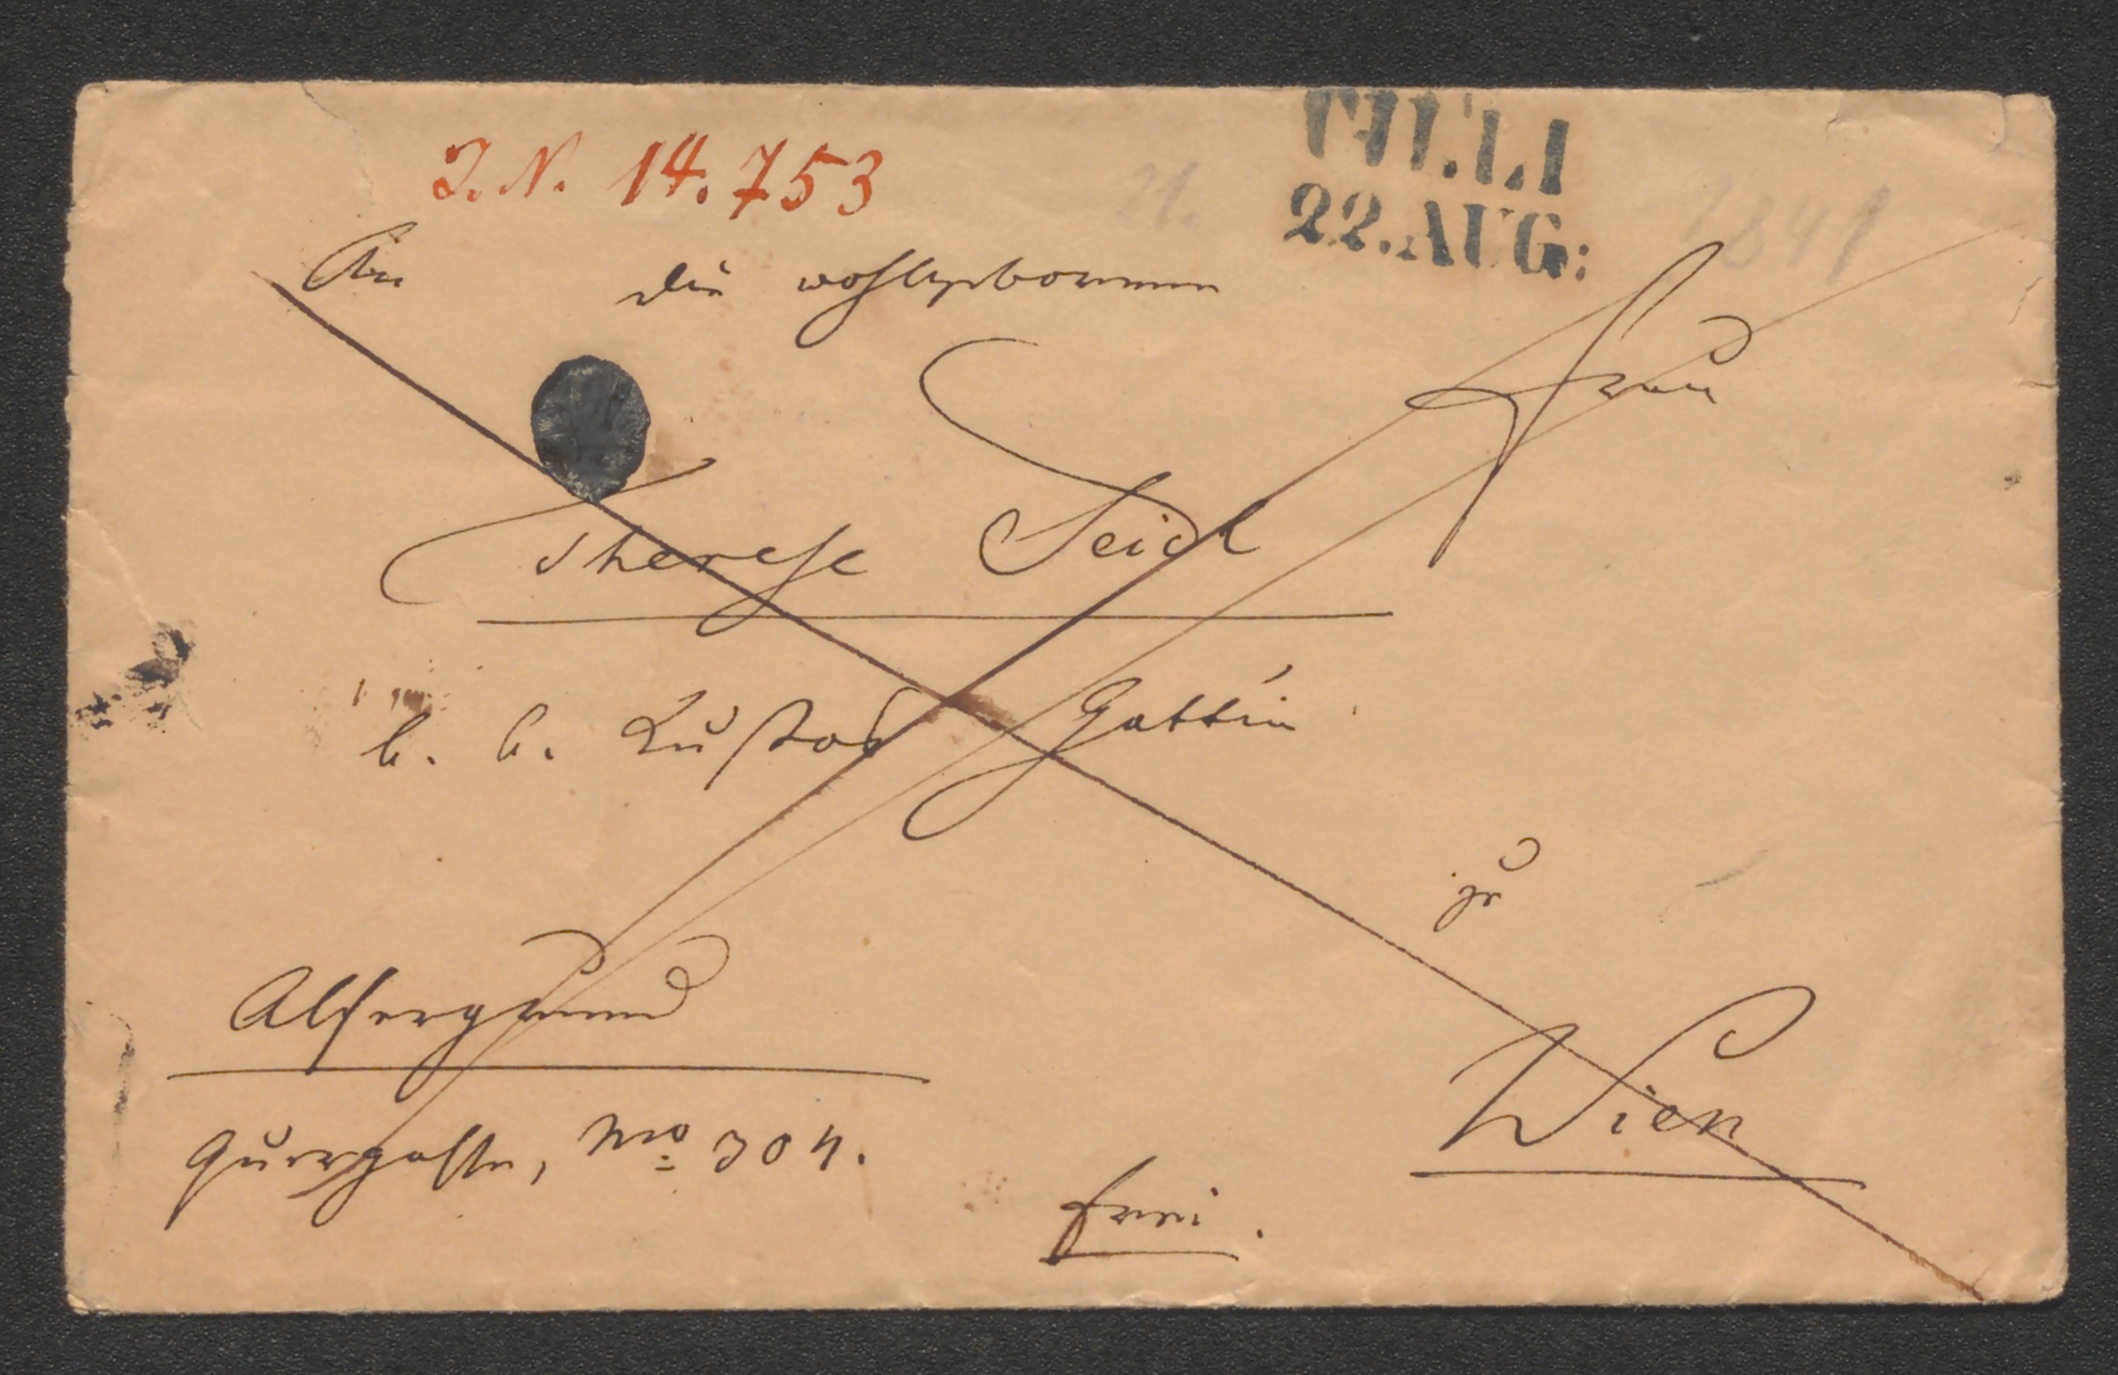 J. N. 14.753
CILLI
22. AUG:
21.
1841
An die wohlgebornne
Frau
Therese Seidl
k. k. Kustos Gattin
zu
Wien
Alsergrund
Quergasse, No 304.
frei.